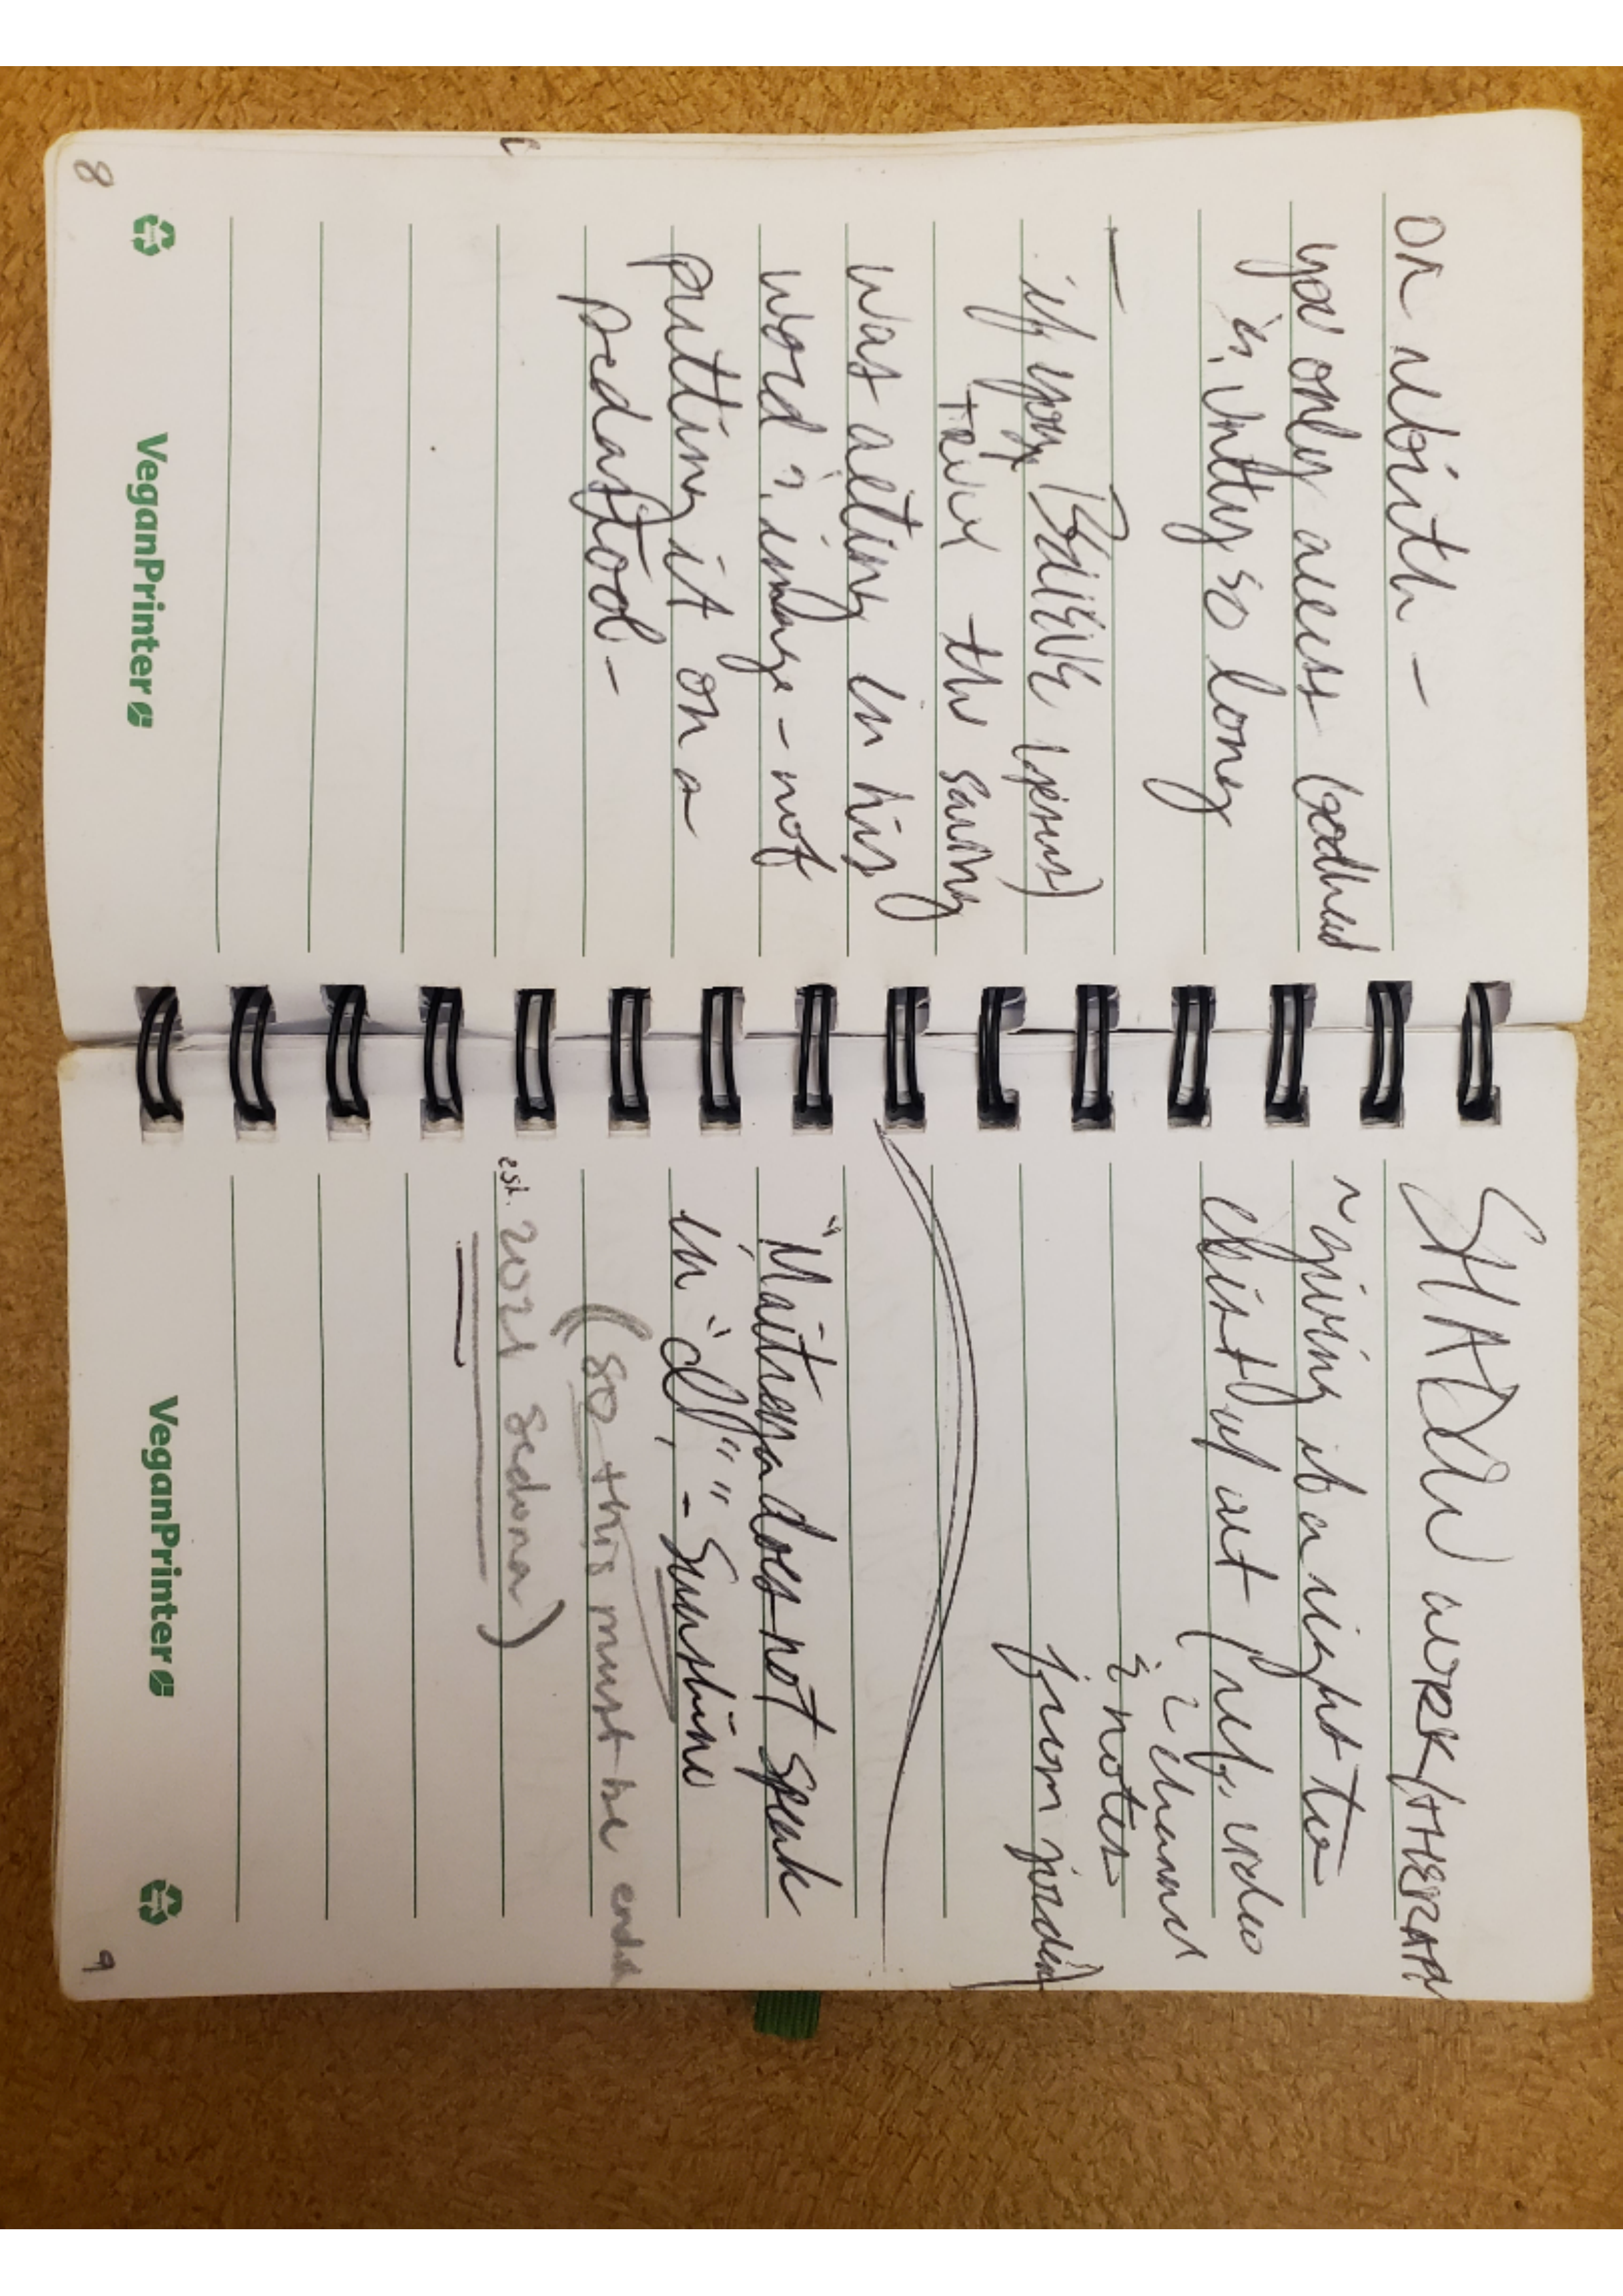 on rebirth -
you only access Godhead
in Unity so long
—
if you BELIEVE (Jesus)
the saving
was acting in his
word & image - not
putting it on a
pedastool -
8
VeganPrinter
SHADOW WORK/THERAPY
~ giving it a right to
exist w/ art (ref. video
2 channel
& notes
from jordan)
"Maitreya does not speak
in "d"" - Sunshine
(so this must be ended
est. 2021 Sedona)
VeganPrinter
9